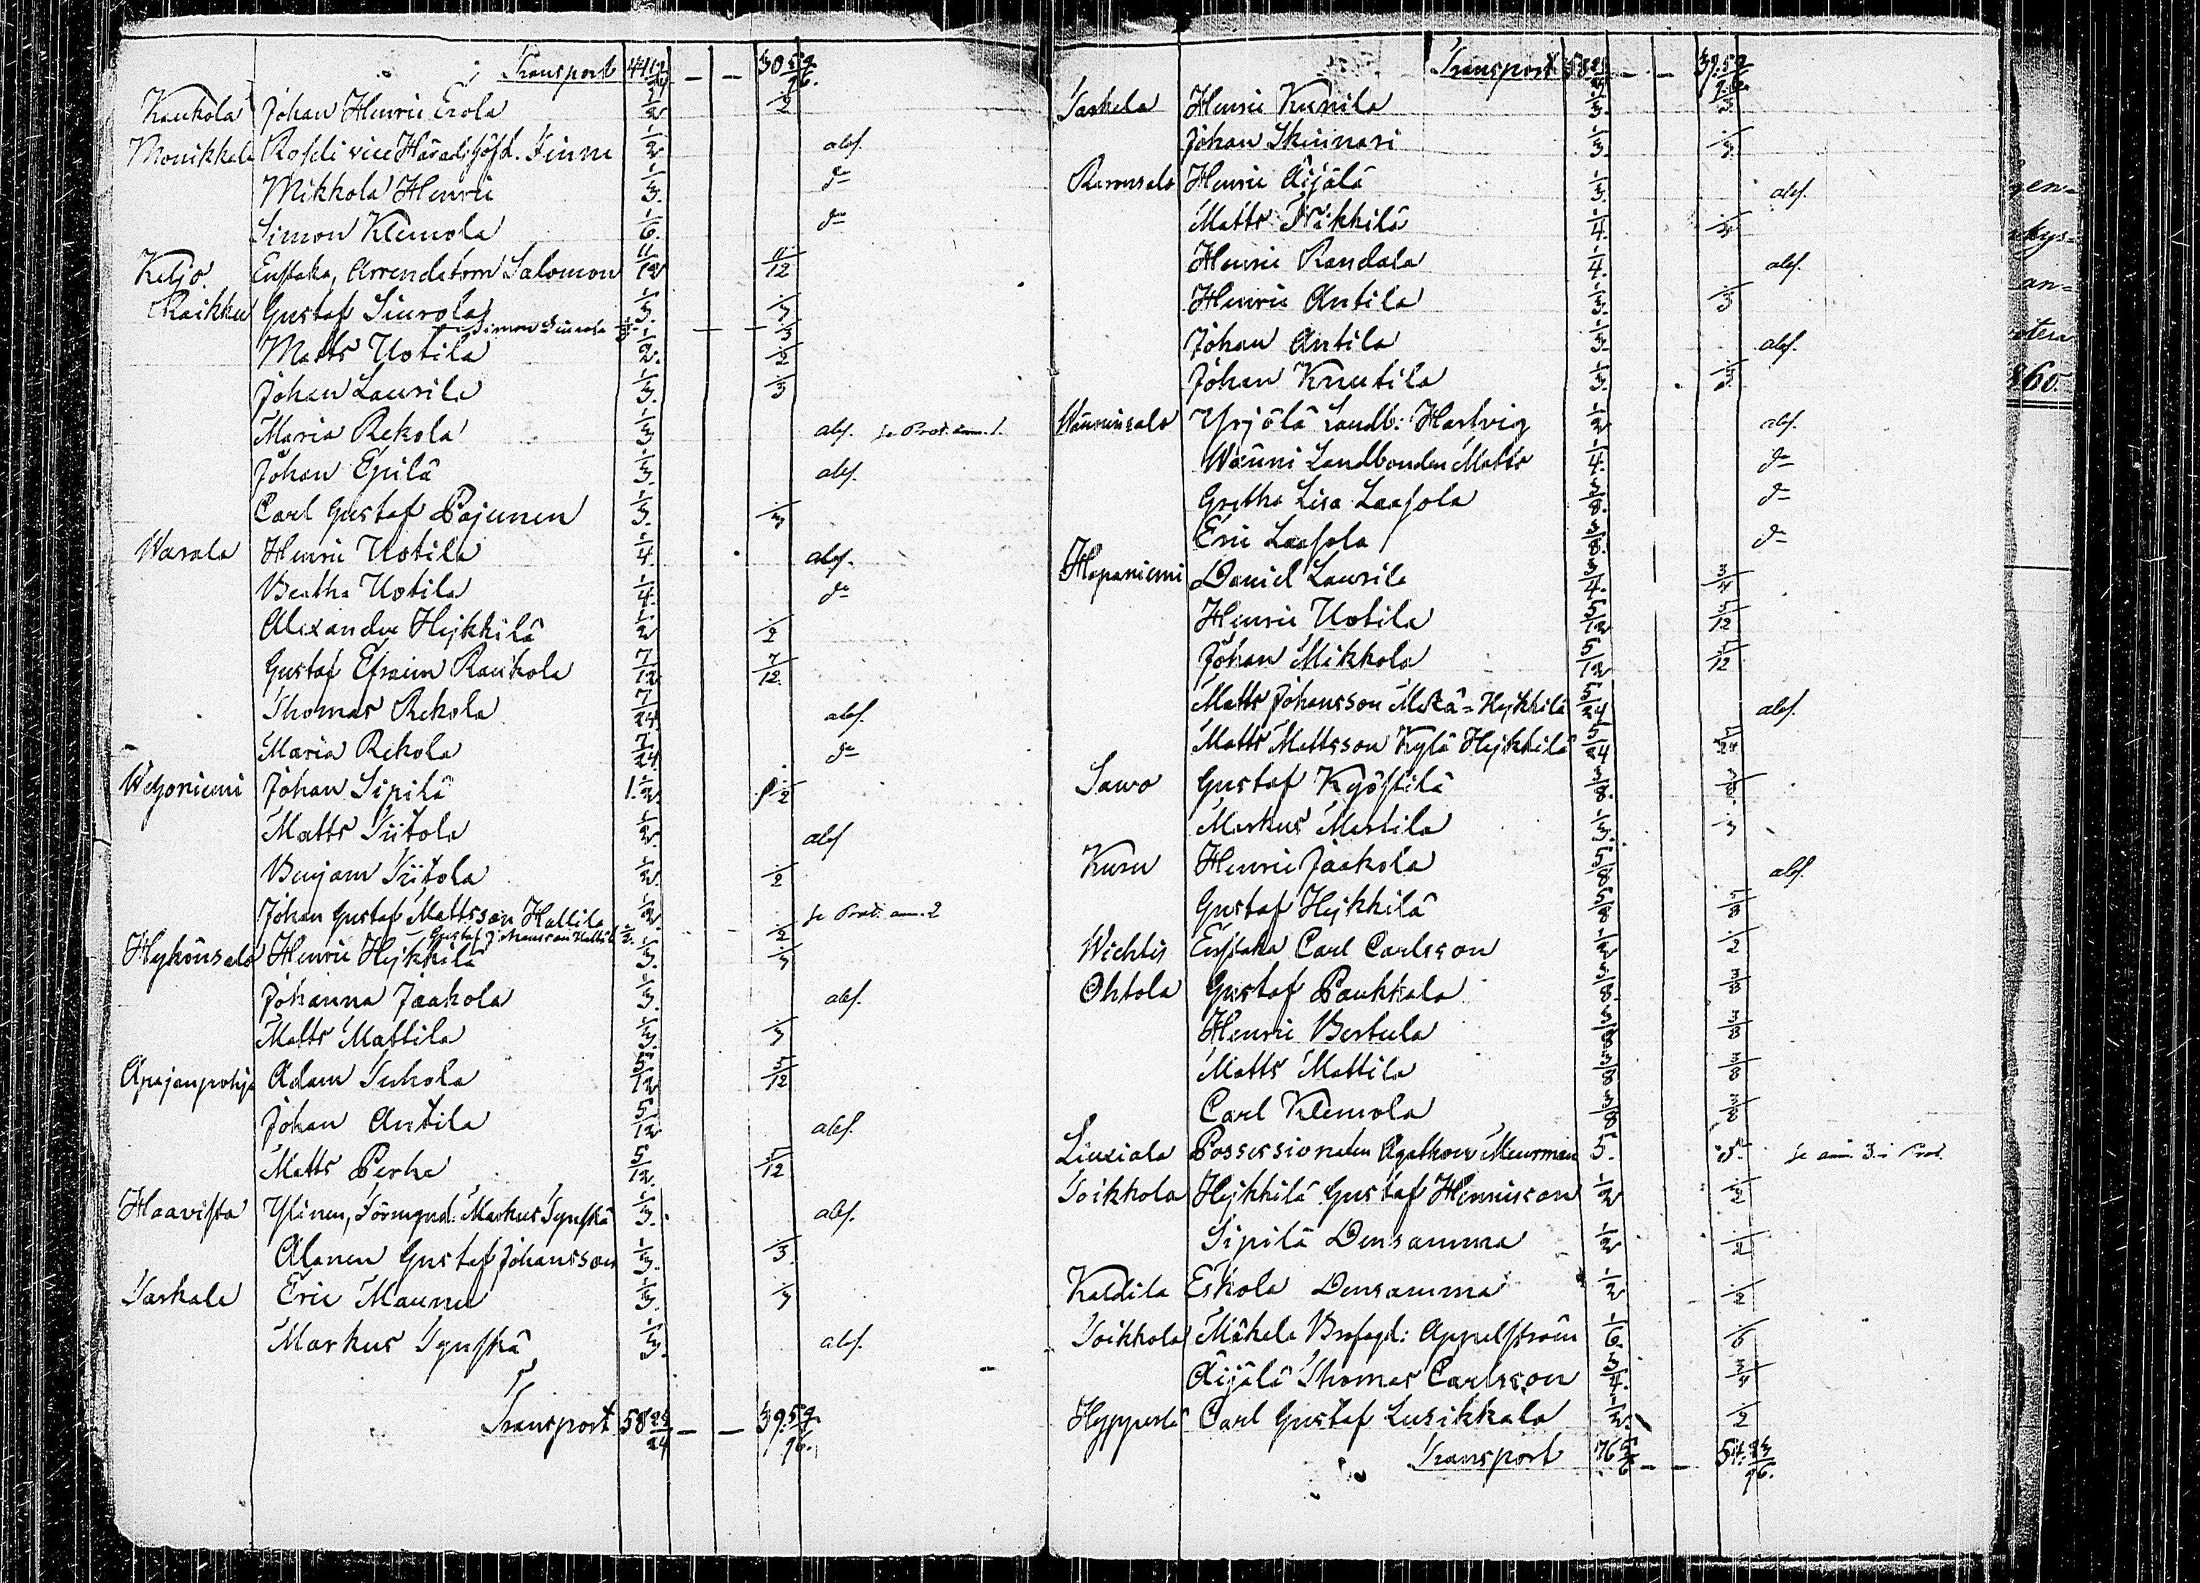 Transport 41 12/24 — — 30 59/96.
Kaukola Johan Henric Erola 1/2 1/2
Monikkala Roseli vice Häradshöfd. Finne 1/2 abs.
Mikkola Henric 1/3. do
Simon Klemola 1/6. do
Keljo. Eustaka, Arrendatorn Salomon 11/12 11/12
Raikku Gustaf Siurola 1/3. 1/3
Simon Siurola 1/3 — — 1/3
Matts Uotila 1/2. 1/2
Johan Laurila 1/3. 1/3
Maria Rekola 1/3 abs. se Prot. anm. 1.
Johan Epilä 1/3. abs.
Carl Gustaf Pajunen 1/3. 1/3
Warala Henric Uotila 1/4. abs.
Beatha Uotila 1/4. do
Alexander Hejkkilä 1/2 1/2
Gustaf Efraim Raukola 7/12 7/12.
Thomas Rekola 7/24. abs.
Maria Rekola 7/24 do
Wehoniemi Johan Sipilä 1.1/2 1 1/2
Matts Tiitola 1/2. abs
Benjam Tiitola 1/2. 1/2
Johan Gustaf Mattsson Hallila 1/2. se Prot. anm. 2
Gustaf Johansson Hallila 1/2. 1/2
Hejkönsalo Henric Hejkkilä 1/3. 1/3
Johanna Jaakola 1/3. abs.
Matts Mattila 1/3. 1/3
Apajanpohja Adam Tuhola 5/12 5/12
Johan Antila 5/12 abs.
Matts Perha 5/12. 5/12
Haavisto Ylinen, Förmynd. Markus Tynskä 1/3. abs.
Alanen Gustaf Johansson 1/3. 1/3.
Taskala Eric Maunu 1/3. 1/3
Markus Tynskä 1/3. abs.
Transport 58 23/24 — — 39. 59/96.
Transport 58 23/24 — — 39. 59/96.
Taskala Henric Kunnila 1/3. 1/3
Johan Skinnari 1/3. 1/3.
Raronsalo Henric Äijälä 1/3. abs.
Matts Nikkilä 1/4. 1/4
Henric Randala 1/4. abs.
Henric Antila 1/3. 1/3
Johan Antila 1/3. abs.
Johan Knutila 1/3. 1/3
Wänninsalo Yrjölä Landb: Hartvig 1/2 abs.
Wänni Landbonden Matts 1/4. do
Gretha Lisa Laasola 3/8. do
Eric Laasola 3/8. do
Hapaniemi Daniel Laurila 3/4. 3/4
Henric Uotila 5/12 5/12
Johan Mikkola 5/12 5/12
Matts Johansson Metä-Hejkkilä 5/24 abs.
Matts Mattsson Kylä Hejkkilä 5/24 5/24
Sawo Gustaf Kyöstilä 3/8. 3/8
Markus Martila 1/3. 1/3
Kuru Henric Jaakola 5/8 abs.
Gustaf Hejkkilä 5/8 5/8
Wichtis Eustaka Carl Carlsson 1/2 1/2
Ohtola Gustaf Paukkala 3/8. 3/8
Henric Bertula 3/8 3/8
Matts Mattila 3/8 3/8
Carl Klemola 3/8 3/8
Liuxiala Possessionaten Agathon Meurman 5. 5. se anm. 3. i Prot.
Toikkola Hejkkilä Gustaf Henricson 1/2 1/2
Sipilä Densamma 1/2 1/2
Kaldila Eskola Densamma 1/2 1/2
Toikkola Mäkelä Brofogd: Appelström 1/6 1/6
Äijälä Thomas Carlsson 3/4. 3/4
Hyppärilä Carl Gustaf Lusikkala 1/2. 1/2
Transport 76 5/6 — — 51. 23/96.
gen-
an-
860.